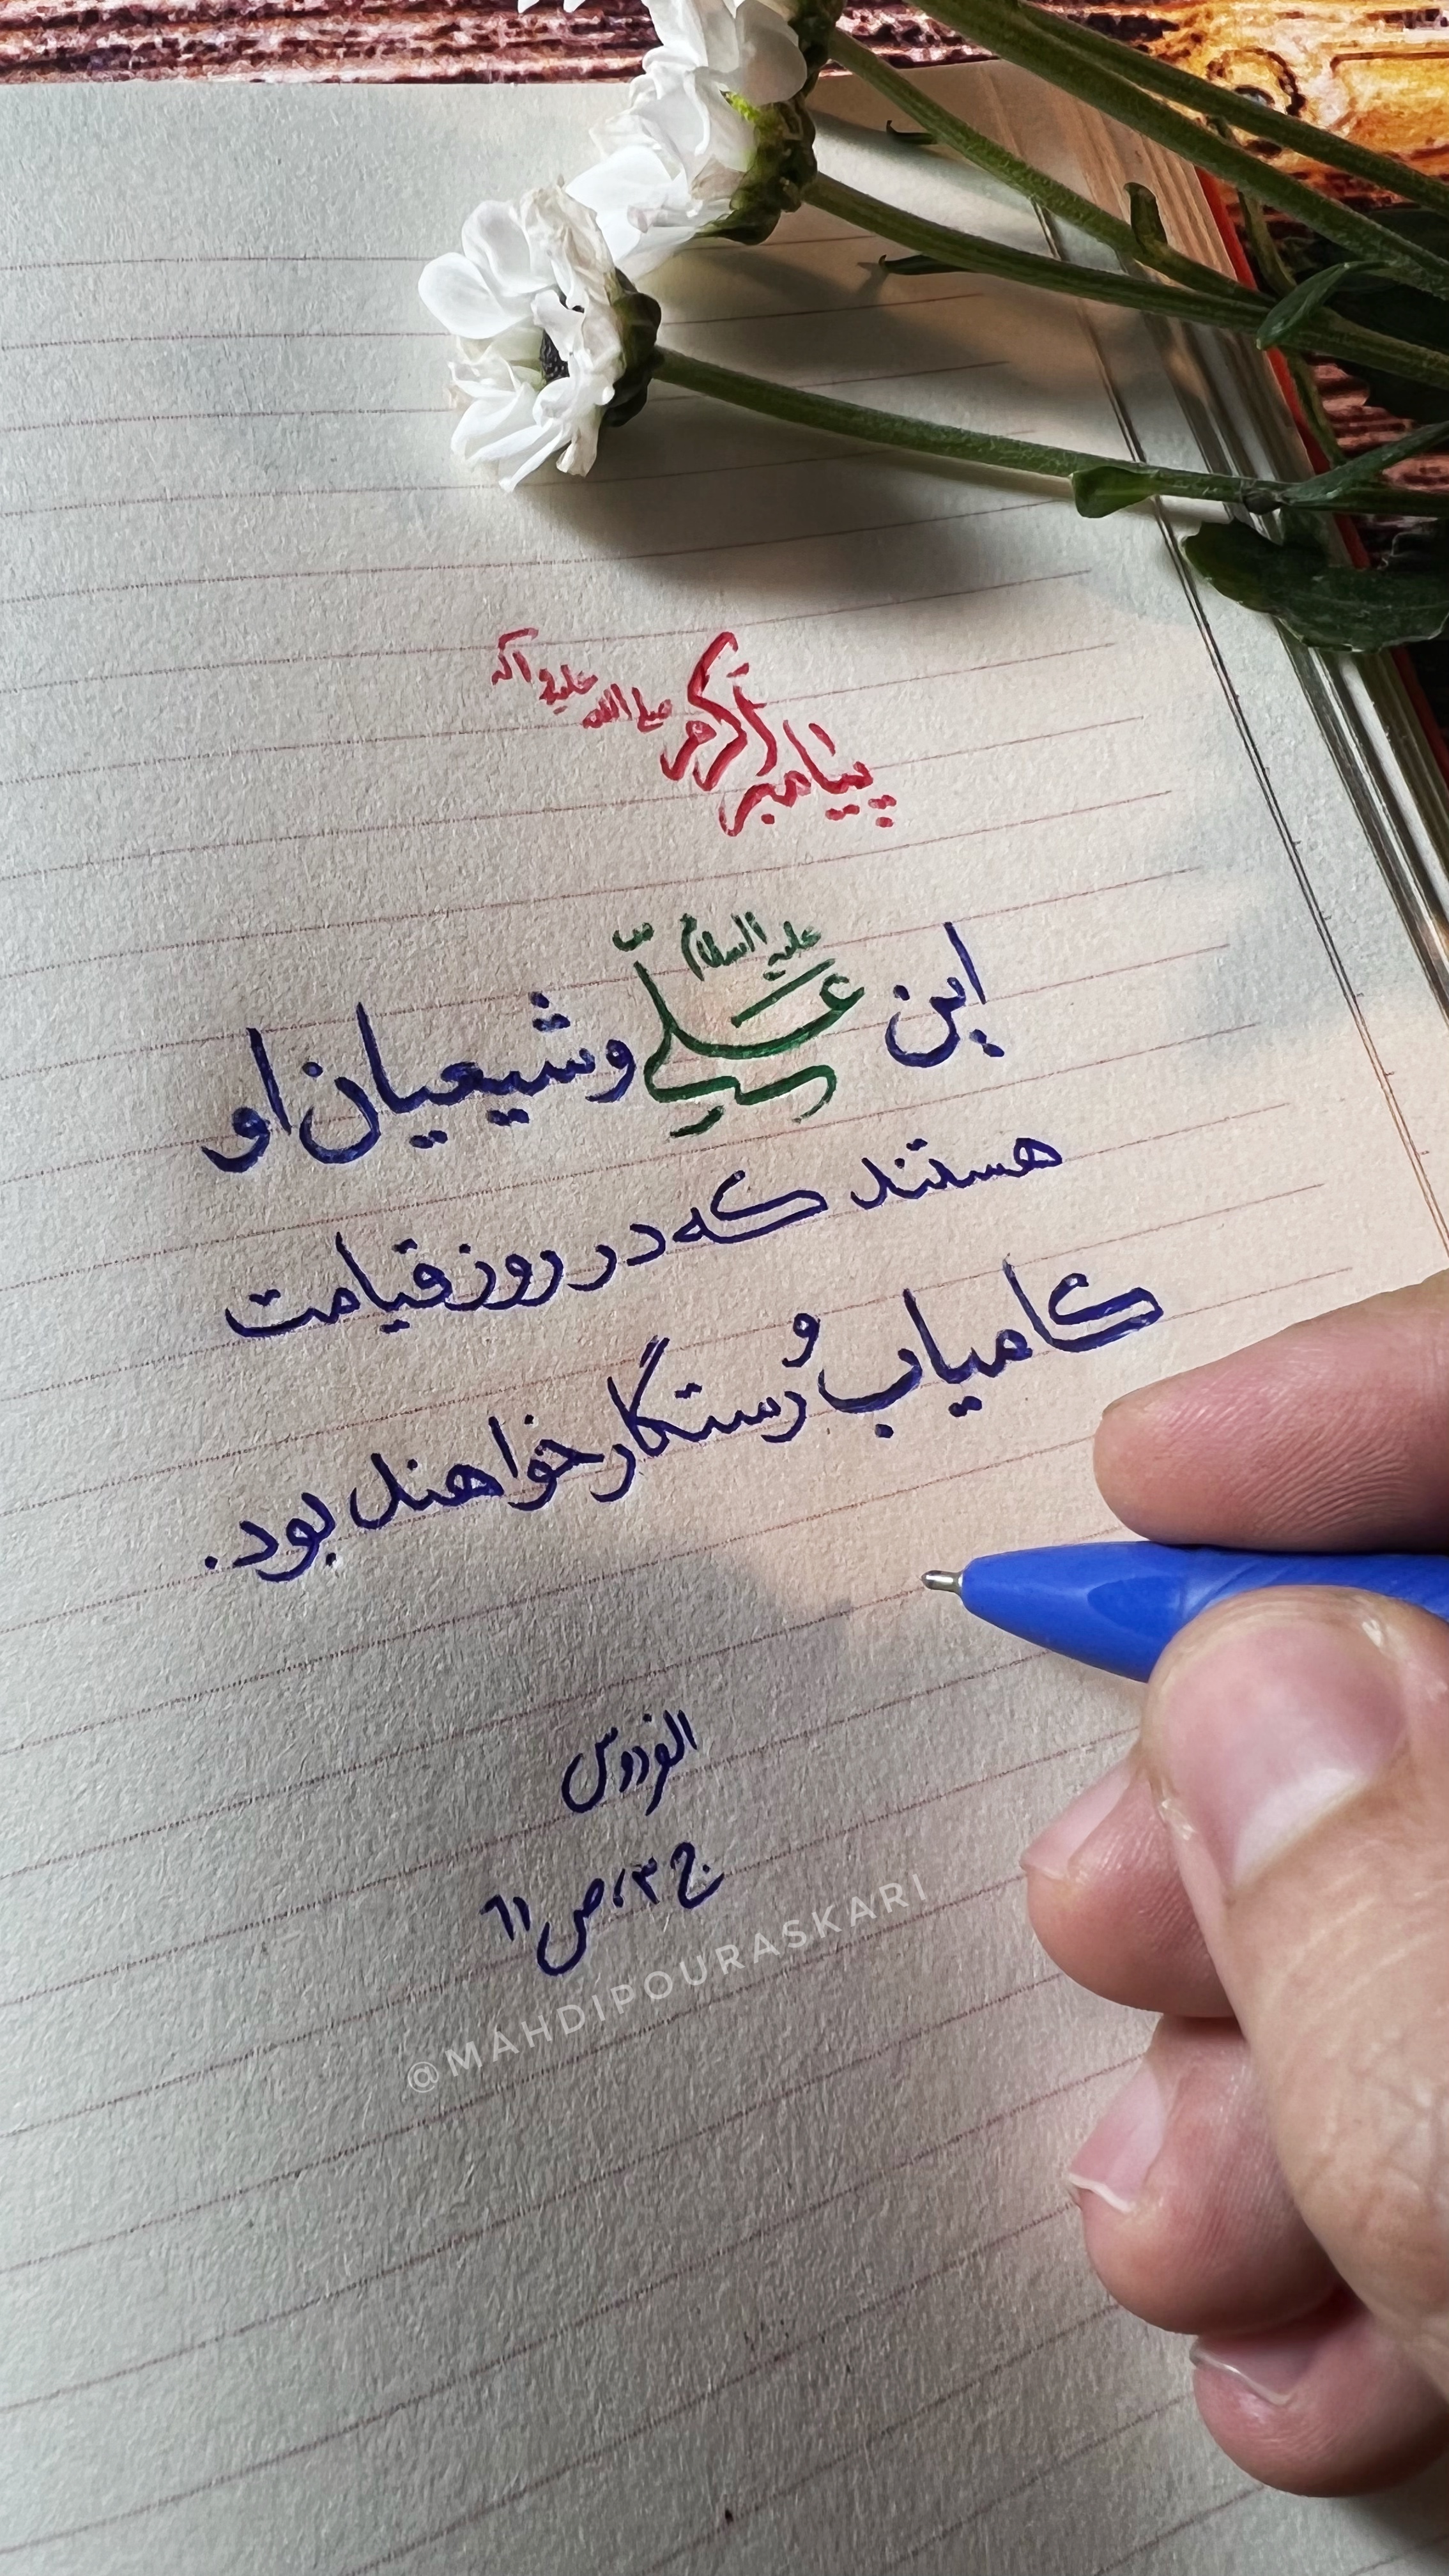 پیامبر اکرم صلی الله علیه و آله
این علی علیه السلام و شیعیان او
هستند که در روز قیامت
کامیاب و رستگار خواهند بود.
الفردوس
ج ۳، ص ۶۱
@MAHDIPOURASKARI